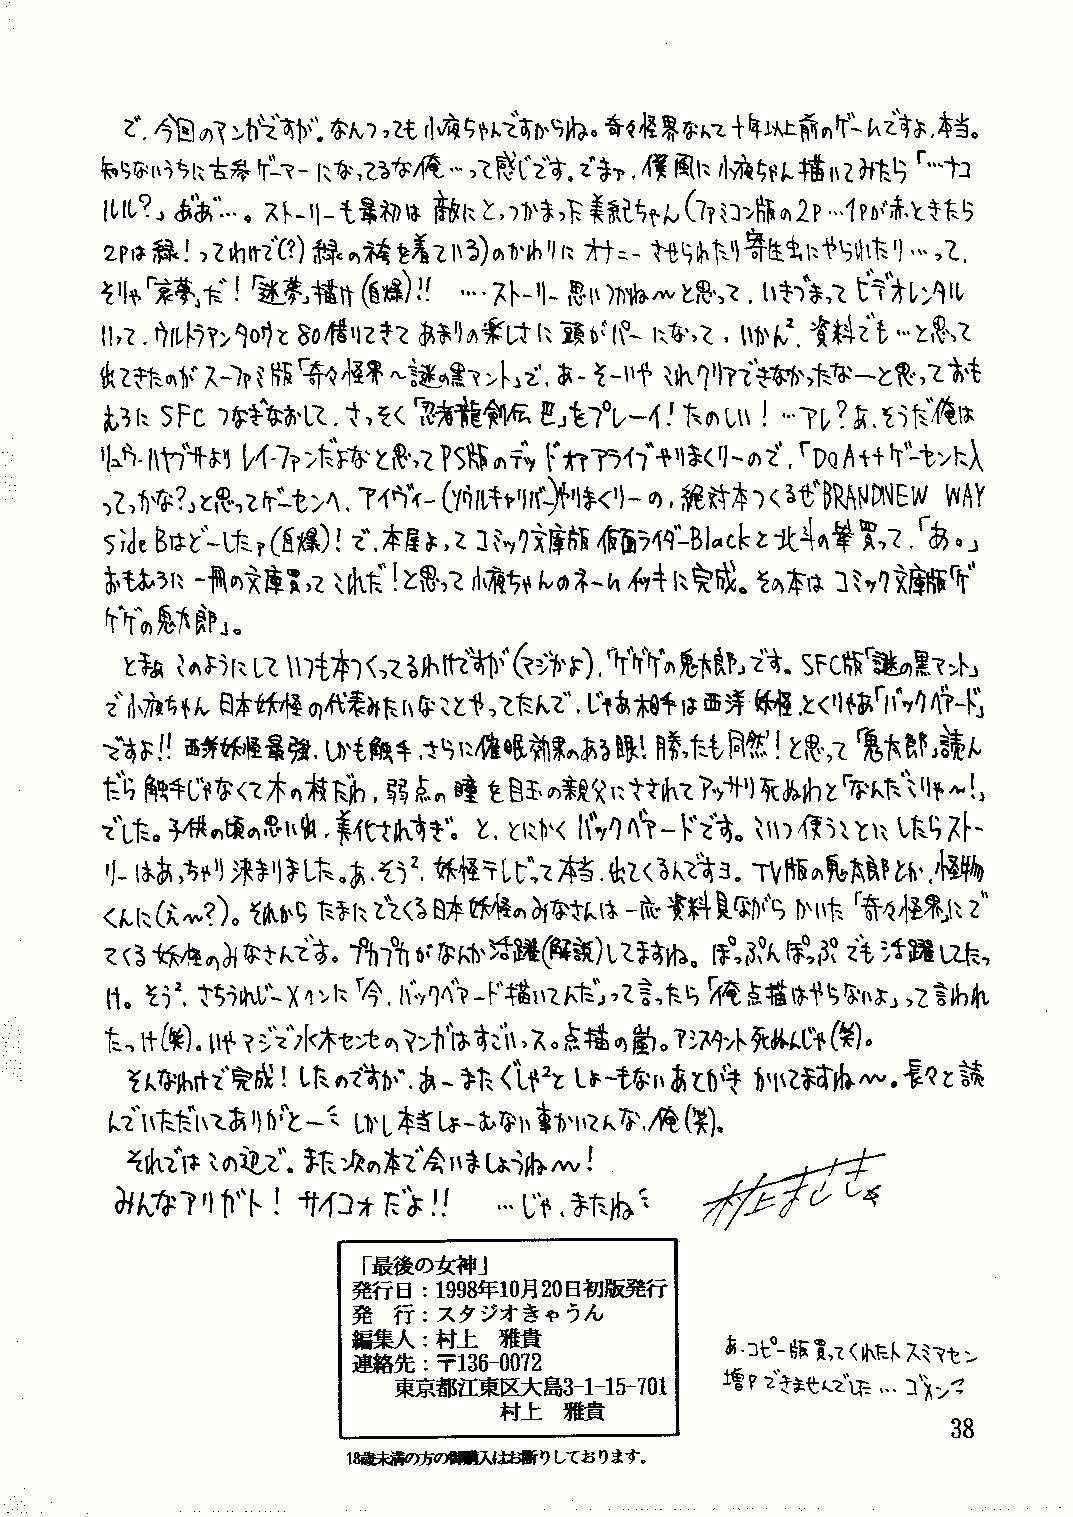 で、今回のマンガですが。なんつっても小夜ちゃんですからね。奇々怪界なんて十年以上前のゲームですよ、本当。
知らないうちに古参ゲーマーになってるな俺…って感じです。でまァ、僕風に小夜ちゃん描いてみたら「…ナコ
ルル?」あ゛あ゛…。ストーリーも最初は敵にとっつかまった美紀ちゃん(ファミコン版の2P…1Pが赤ときたら
2Pは緑!ってわけで(?)緑の袴を着ている)のかわりにオナニーさせられたり寄生虫にやられたり…って、
そりゃ「哀夢」だ!「迷夢」描け(自爆)!! …ストーリー思いつかね〜と思って、いきづまってビデオレンタル
いって、ウルトラマンタロウと80借りてきてあまりの楽しさに頭がパーになって、いかん²、資料でも…と思って
出てきたのがスーファミ版「奇々怪界〜謎の黒マント」で、あーそーいやこれクリアできなかったなーと思っておも
むろにSFCつなぎなおして、さっそく「忍者龍剣伝巴」をプレーイ!たのしい!…アレ?あ、そうだ俺は
リュウ・ハヤブサよりレイ・ファンだよなと思ってPS版のデッドオアアライブやりまくりーので、「DOA++ゲーセンに入
ってっかな?」と思ってゲーセンへ、アイヴィー(ソウルキャリバー)やりまくりーの、絶対本つくるぜBRANDNEW WAY
sideBはどーしたァ(自爆)!で、本屋よってコミック文庫版仮面ライダーBlackと北斗の拳買って、「あ。」
おもむろに一冊の文庫買ってこれだ!と思って小夜ちゃんのネームイッキに完成。その本はコミック文庫版「ゲ
ゲゲの鬼太郎」。
とまぁこのようにしていつも本つくってるわけですが(マジかよ)、「ゲゲゲの鬼太郎」です。SFC版「謎の黒マント」
で小夜ちゃん日本妖怪の代表みたいなことやってたんで、じゃあ相手は西洋妖怪、とくりゃあ「バックベアード」
ですよ!!西洋妖怪最強、しかも触手、さらに催眠効果のある眼!勝ったも同然!と思って「鬼太郎」読ん
だら触手じゃなくて木の枝だわ、弱点の瞳を目玉の親父にさされてアッサリ死ぬわと「なんだこりゃ〜!」
でした。子供の頃の思い出、美化されすぎ。と、とにかくバックベアードです。こいつ使うことにしたらストー
リーはあっちゃり決まりました。あ、そう²、妖怪テレビって本当、出てくるんですヨ。TV版の鬼太郎とか、怪物
くんに(え〜?)。それからたまにでてくる日本妖怪のみなさんは一応資料見ながらかいた「奇々怪界」にで
てくる妖怪のみなさんです。プカプカがなんか活躍(解説)してますね。ぽっぷんぽっぷでも活躍してたっ
け。そう²、さちうれじーXクンに「今、バックベアード描いてんだ」って言ったら「俺点描はやらないよ」って言われ
たっけ(笑)。いやマジで水木センセのマンガはすごいっス。点描の嵐。アシスタント死ぬんじゃ(笑)。
そんなわけで完成!したのですが、あーまたぐしゃ²としょーもないあとがきかいてますね〜。長々と読
んでいただいてありがとーミ しかし本当しょーむない事かいてんな、俺(笑)。
それではこの辺で。また次の本で会いましょうね〜!
みんなアリガト! サイコォだよ!! …じゃ、またねミ
村上まさき
「最後の女神」
発行日:1998年10月20日初版発行
発 行:スタジオきゃうん
編集人:村上 雅貴
連絡先:〒136-0072
東京都江東区大島3-1-15-701
村上 雅貴
18歳未満の方の御購入はお断りしております。
あ、コピー版買ってくれた人スミマセン
増Pできませんでした…ゴメン
38